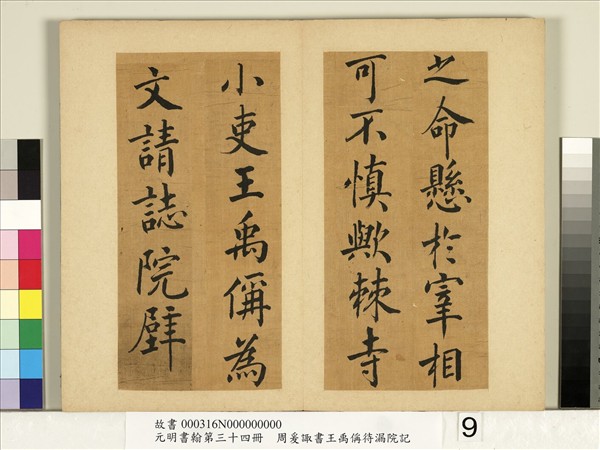 之命懸於宰相
可不慎歟棘寺
小吏王禹偁為
文請誌院壁
故書 000316N000000000
元明書翰第三十四冊 周爰諏書王禹偁待漏院記
9